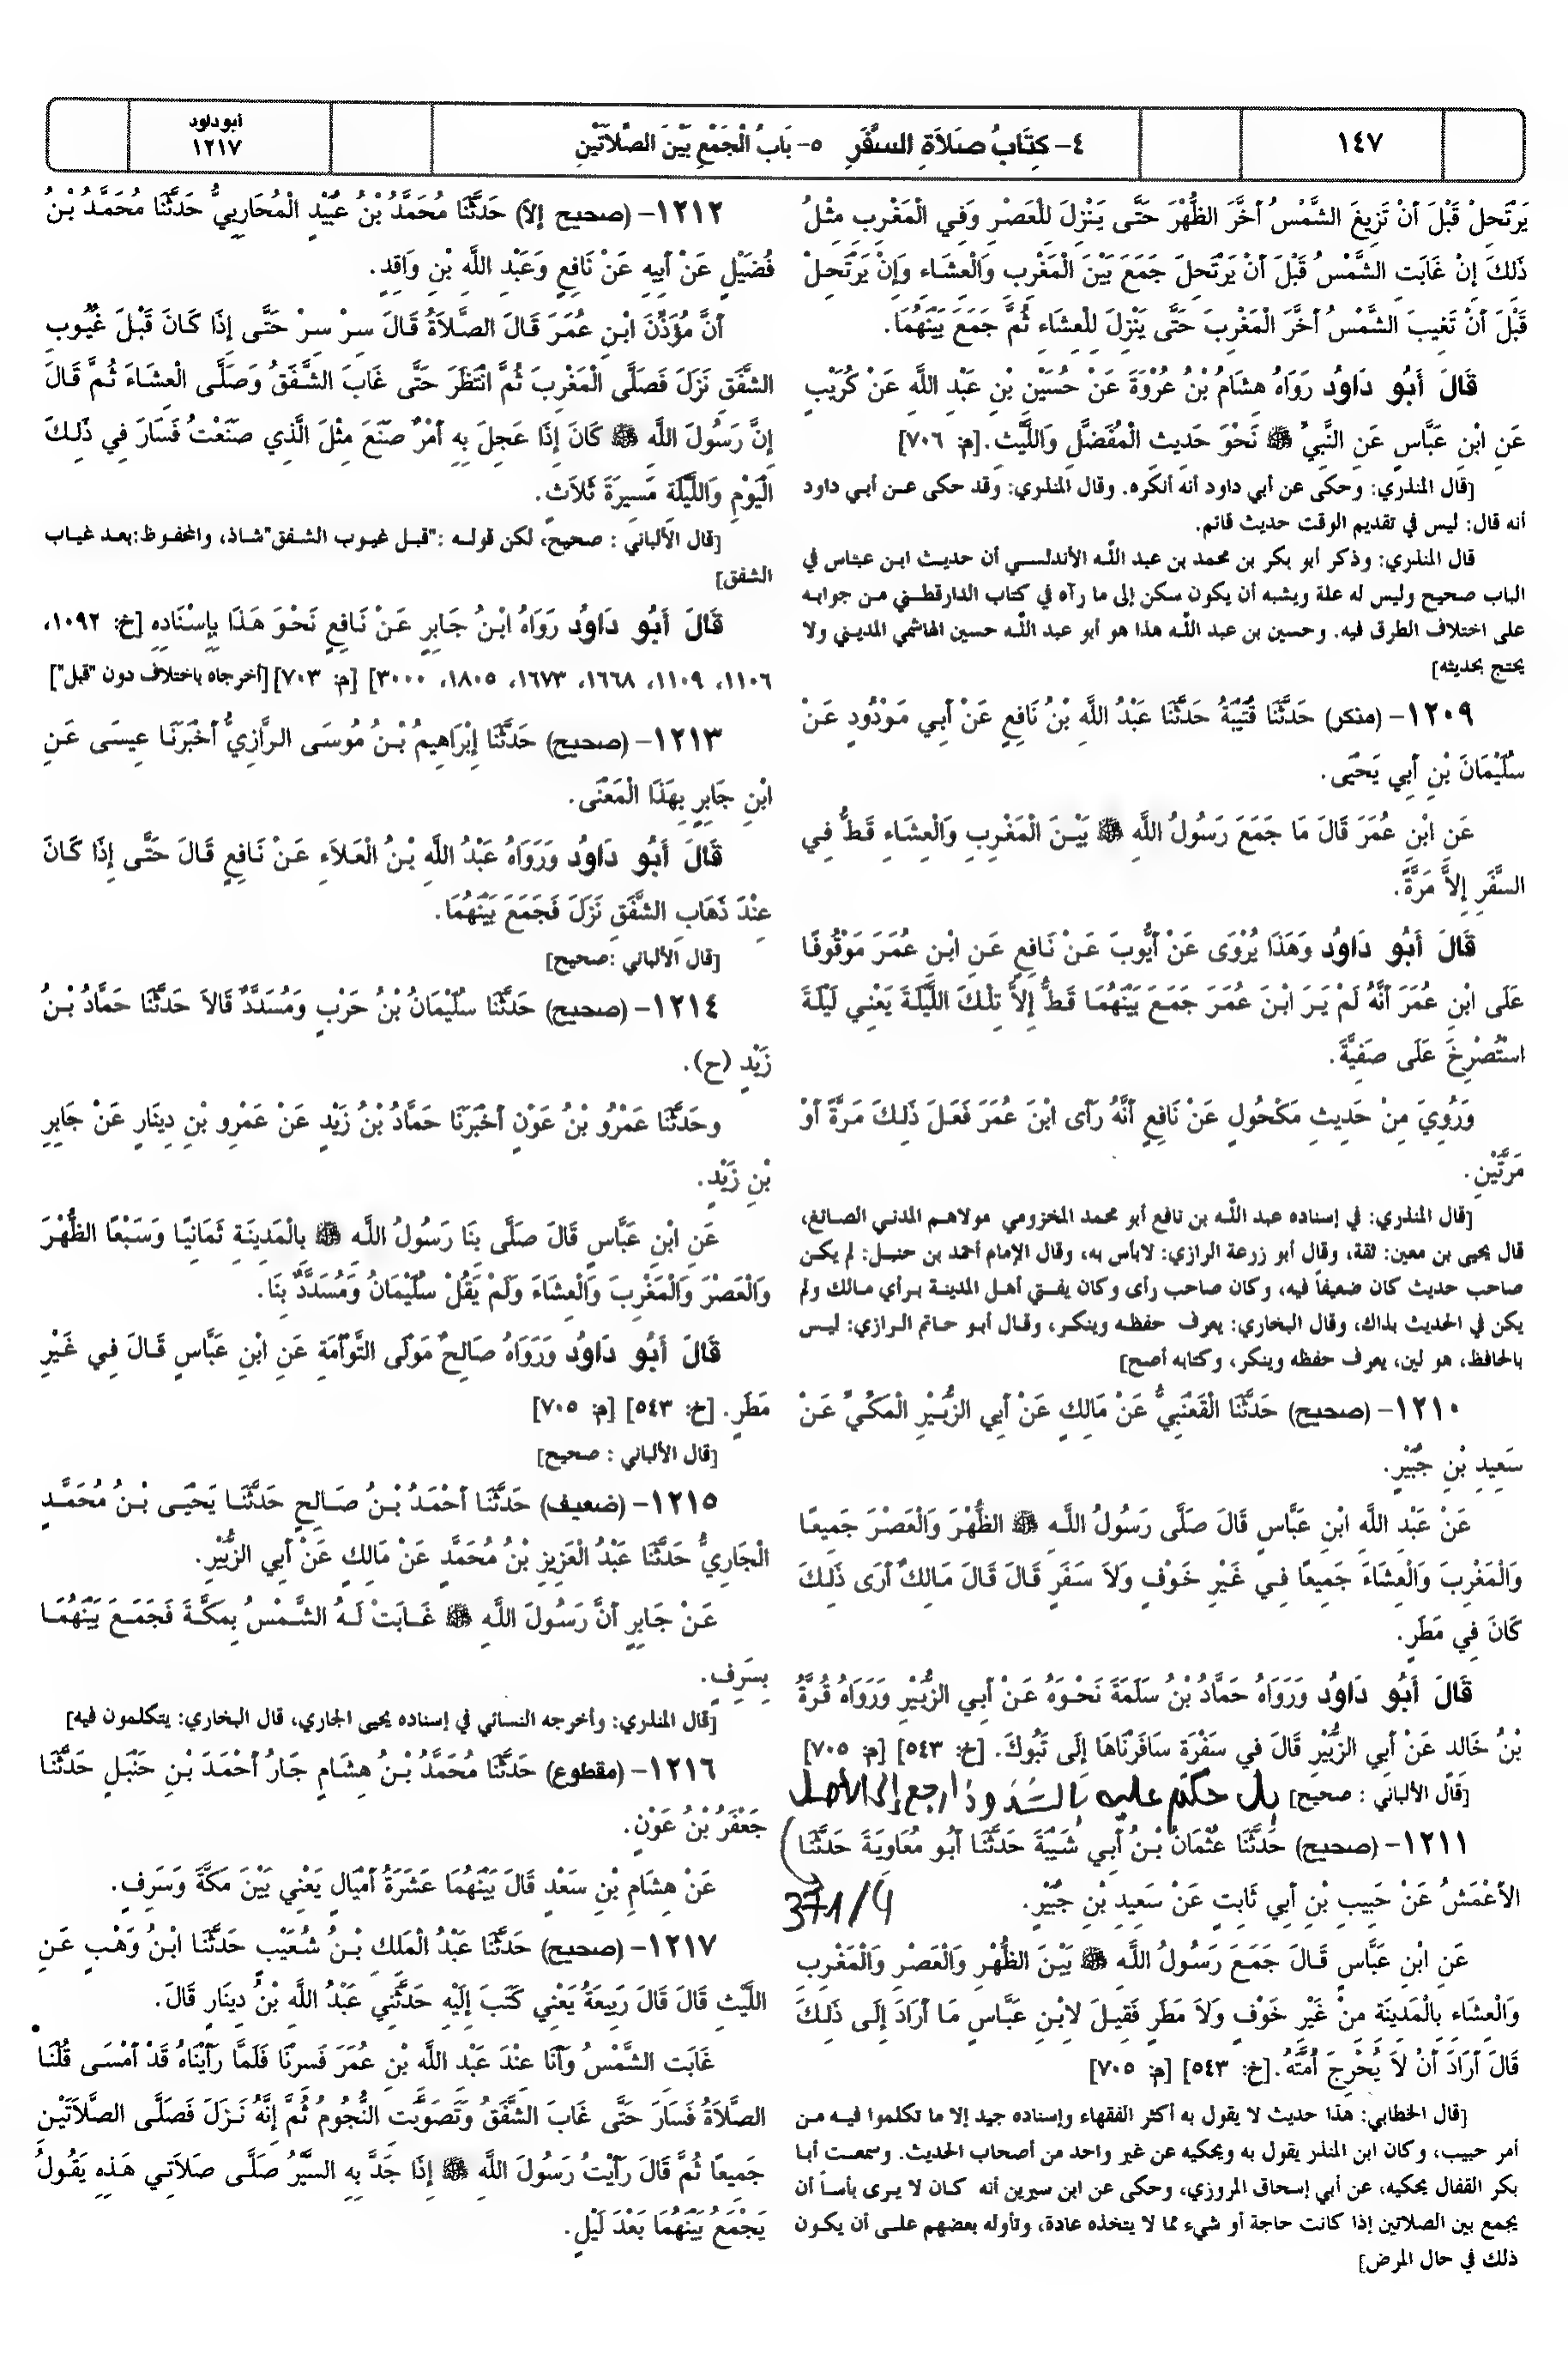 ١٤٧
٤- كِتَابُ صَلاَةِ السَّفَرِ ٥- بَابُ الْجَمْعِ بَيْنَ الصَّلاَتَيْنِ
أبو داود
١٢١٧
يَرْتَحِلْ قَبْلَ أَنْ تَزِيغَ الشَّمْسُ أَخَّرَ الظُّهْرَ حَتَّى يَنْزِلَ لِلْعَصْرِ وَفِي الْمَغْرِبِ مِثْلُ
ذَلِكَ إِنْ غَابَتِ الشَّمْسُ قَبْلَ أَنْ يَرْتَحِلَ جَمَعَ بَيْنَ الْمَغْرِبِ وَالْعِشَاءِ وَإِنْ يَرْتَحِلْ
قَبْلَ أَنْ تَغِيبَ الشَّمْسُ أَخَّرَ الْمَغْرِبَ حَتَّى يَنْزِلَ لِلْعِشَاءِ ثُمَّ جَمَعَ بَيْنَهُمَا.
قَالَ أَبُو دَاوُد رَوَاهُ هِشَامُ بْنُ عُرْوَةَ عَنْ حُسَيْنِ بْنِ عَبْدِ اللَّهِ عَنْ كُرَيْبٍ
عَنِ ابْنِ عَبَّاسٍ عَنِ النَّبِيِّ ﷺ نَحْوَ حَدِيثِ الْمُفَضَّلِ وَاللَّيْثِ.[م: ٧٠٦]
[قال المنذري: وحكى عن أبي داود أنه أنكره. وقال المنذري: وقد حكى عن أبي داود
أنه قال: ليس في تقديم الوقت حديث قائم.
قال المنذري: وذكر أبو بكر بن محمد بن عبد اللّه الأندلسي أن حديث ابن عباس في
الباب صحيح وليس له علة ويشبه أن يكون سكن إلى ما رآه في كتاب الدارقطني من جوابه
على اختلاف الطرق فيه. وحسين بن عبد اللّه هذا هو أبو عبد اللّه حسين الهاشمي المديني ولا
يحتج بحديثه]
١٢٠٩- (منكر) حَدَّثَنَا قُتَيْبَةُ حَدَّثَنَا عَبْدُ اللَّهِ بْنُ نَافِعٍ عَنْ أَبِي مَوْدُودٍ عَنْ
سُلَيْمَانَ بْنِ أَبِي يَحْيَى.
عَنِ ابْنِ عُمَرَ قَالَ مَا جَمَعَ رَسُولُ اللَّهِ ﷺ بَيْنَ الْمَغْرِبِ وَالْعِشَاءِ قَطُّ فِي
السَّفَرِ إِلاَّ مَرَّةً.
قَالَ أَبُو دَاوُد وَهَذَا يُرْوَى عَنْ أَيُّوبَ عَنْ نَافِعٍ عَنِ ابْنِ عُمَرَ مَوْقُوفًا
عَلَى ابْنِ عُمَرَ أَنَّهُ لَمْ يَرَ ابْنَ عُمَرَ جَمَعَ بَيْنَهُمَا قَطُّ إِلاَّ تِلْكَ اللَّيْلَةَ يَعْنِي لَيْلَةَ
اسْتُصْرِخَ عَلَى صَفِيَّةَ.
وَرُوِيَ مِنْ حَدِيثِ مَكْحُولٍ عَنْ نَافِعٍ أَنَّهُ رَأَى ابْنَ عُمَرَ فَعَلَ ذَلِكَ مَرَّةً أَوْ
مَرَّتَيْنِ.
[قال المنذري: في إسناده عبد اللّه بن نافع أبو محمد المخزومي مولاهم المدني الصائغ،
قال يحيى بن معين: ثقة، وقال أبو زرعة الرازي: لابأس به، وقال الإمام أحمد بن حنبل: لم يكن
صاحب حديث كان ضعيفاً فيه، وكان صاحب رأى وكان يفتي أهل المدينة برأي مالك ولم
يكن في الحديث بذاك، وقال البخاري: يعرف حفظه وينكر، وقال أبو حاتم الرازي: ليس
بالحافظ، هو لين، يعرف حفظه وينكر، وكتابه أصح]
١٢١٠- (صحيح) حَدَّثَنَا الْقَعْنَبِيُّ عَنْ مَالِكٍ عَنْ أَبِي الزُّبَيْرِ الْمَكِّيِّ عَنْ
سَعِيدِ بْنِ جُبَيْرٍ.
عَنْ عَبْدِ اللَّهِ ابْنِ عَبَّاسٍ قَالَ صَلَّى رَسُولُ اللَّهِ ﷺ الظُّهْرَ وَالْعَصْرَ جَمِيعًا
وَالْمَغْرِبَ وَالْعِشَاءَ جَمِيعًا فِي غَيْرِ خَوْفٍ وَلاَ سَفَرٍ قَالَ قَالَ مَالِكٌ أَرَى ذَلِكَ
كَانَ فِي مَطَرٍ.
قَالَ أَبُو دَاوُد وَرَوَاهُ حَمَّادُ بْنُ سَلَمَةَ نَحْوَهُ عَنْ أَبِي الزُّبَيْرِ وَرَوَاهُ قُرَّةُ
بْنُ خَالِدٍ عَنْ أَبِي الزُّبَيْرِ قَالَ فِي سَفْرَةٍ سَافَرْنَاهَا إِلَى تَبُوكَ. [خ: ٥٤٣] [م: ٧٠٥]
[قال الألباني : صحيح] بل حكم عليه بالشذوذ ارجع إلى الأصل
371/4
١٢١١- (صحيح) حَدَّثَنَا عُثْمَانُ بْنُ أَبِي شَيْبَةَ حَدَّثَنَا أَبُو مُعَاوِيَةَ حَدَّثَنَا
الأَعْمَشُ عَنْ حَبِيبِ بْنِ أَبِي ثَابِتٍ عَنْ سَعِيدِ بْنِ جُبَيْرٍ.
عَنِ ابْنِ عَبَّاسٍ قَالَ جَمَعَ رَسُولُ اللَّهِ ﷺ بَيْنَ الظُّهْرِ وَالْعَصْرِ وَالْمَغْرِبِ
وَالْعِشَاءِ بِالْمَدِينَةِ مِنْ غَيْرِ خَوْفٍ وَلاَ مَطَرٍ فَقِيلَ لاِبْنِ عَبَّاسٍ مَا أَرَادَ إِلَى ذَلِكَ
قَالَ أَرَادَ أَنْ لاَ يُحْرِجَ أُمَّتَهُ.[خ: ٥٤٣] [م: ٧٠٥]
[قال الخطابي: هذا حديث لا يقول به أكثر الفقهاء وإسناده جيد إلا ما تكلموا فيه من
أمر حبيب، وكان ابن المنذر يقول به ويحكيه عن غير واحد من أصحاب الحديث. وسمعت أبا
بكر القفال يحكيه، عن أبي إسحاق المروزي، وحكى عن ابن سيرين أنه كان لا يرى بأساً أن
يجمع بين الصلاتين إذا كانت حاجة أو شيء مما لا يتخذه عادة، وتأوله بعضهم على أن يكون
ذلك في حال المرض]
١٢١٢- (صحيح إلا) حَدَّثَنَا مُحَمَّدُ بْنُ عُبَيْدٍ الْمُحَارِبِيُّ حَدَّثَنَا مُحَمَّدُ بْنُ
فُضَيْلٍ عَنْ أَبِيهِ عَنْ نَافِعٍ وَعَبْدِ اللَّهِ بْنِ وَاقِدٍ.
أَنَّ مُؤَذِّنَ ابْنِ عُمَرَ قَالَ الصَّلاَةُ قَالَ سِرْ سِرْ حَتَّى إِذَا كَانَ قَبْلَ غُيُوبِ
الشَّفَقِ نَزَلَ فَصَلَّى الْمَغْرِبَ ثُمَّ انْتَظَرَ حَتَّى غَابَ الشَّفَقُ وَصَلَّى الْعِشَاءَ ثُمَّ قَالَ
إِنَّ رَسُولَ اللَّهِ ﷺ كَانَ إِذَا عَجِلَ بِهِ أَمْرٌ صَنَعَ مِثْلَ الَّذِي صَنَعْتُ فَسَارَ فِي ذَلِكَ
الْيَوْمِ وَاللَّيْلَةِ مَسِيرَةَ ثَلاَثٍ.
[قال الألباني : صحيح، لكن قوله :"قبل غيوب الشفق"شاذ، والمحفوظ:بعد غياب
الشفق]
قَالَ أَبُو دَاوُد رَوَاهُ ابْنُ جَابِرٍ عَنْ نَافِعٍ نَحْوَ هَذَا بِإِسْنَادِهِ [خ: ١٠٩٢،
١١٠٦، ١١٠٩، ١٦٦٨، ١٦٧٣، ١٨٠٥، ٣٠٠٠] [م: ٧٠٣][أخرجاه باختلاف دون "قبل"]
١٢١٣- (صحيح) حَدَّثَنَا إِبْرَاهِيمُ بْنُ مُوسَى الرَّازِيُّ أَخْبَرَنَا عِيسَى عَنِ
ابْنِ جَابِرٍ بِهَذَا الْمَعْنَى.
قَالَ أَبُو دَاوُد وَرَوَاهُ عَبْدُ اللَّهِ بْنُ الْعَلاَءِ عَنْ نَافِعٍ قَالَ حَتَّى إِذَا كَانَ
عِنْدَ ذَهَابِ الشَّفَقِ نَزَلَ فَجَمَعَ بَيْنَهُمَا.
[قال الألباني :صحيح]
١٢١٤- (صحيح) حَدَّثَنَا سُلَيْمَانُ بْنُ حَرْبٍ وَمُسَدَّدٌ قَالاَ حَدَّثَنَا حَمَّادُ بْنُ
زَيْدٍ (ح).
وحَدَّثَنَا عَمْرُو بْنُ عَوْنٍ أَخْبَرَنَا حَمَّادُ بْنُ زَيْدٍ عَنْ عَمْرِو بْنِ دِينَارٍ عَنْ جَابِرِ
بْنِ زَيْدٍ.
عَنِ ابْنِ عَبَّاسٍ قَالَ صَلَّى بِنَا رَسُولُ اللَّهِ ﷺ بِالْمَدِينَةِ ثَمَانِيًا وَسَبْعًا الظُّهْرَ
وَالْعَصْرَ وَالْمَغْرِبَ وَالْعِشَاءَ وَلَمْ يَقُلْ سُلَيْمَانُ وَمُسَدَّدٌ بِنَا.
قَالَ أَبُو دَاوُد وَرَوَاهُ صَالِحٌ مَوْلَى التَّوْأَمَةِ عَنِ ابْنِ عَبَّاسٍ قَالَ فِي غَيْرِ
مَطَرٍ. [خ: ٥٤٣] [م: ٧٠٥]
[قال الألباني : صحيح]
١٢١٥- (ضعيف) حَدَّثَنَا أَحْمَدُ بْنُ صَالِحٍ حَدَّثَنَا يَحْيَى بْنُ مُحَمَّدٍ
الْجَارِيُّ حَدَّثَنَا عَبْدُ الْعَزِيزِ بْنُ مُحَمَّدٍ عَنْ مَالِكٍ عَنْ أَبِي الزُّبَيْرِ.
عَنْ جَابِرٍ أَنَّ رَسُولَ اللَّهِ ﷺ غَابَتْ لَهُ الشَّمْسُ بِمَكَّةَ فَجَمَعَ بَيْنَهُمَا
بِسَرِفٍ.
[قال المنذري: وأخرجه النسائي في إسناده يحيى الجاري، قال البخاري: يتكلمون فيه]
١٢١٦- (مقطوع) حَدَّثَنَا مُحَمَّدُ بْنُ هِشَامٍ جَارُ أَحْمَدَ بْنِ حَنْبَلٍ حَدَّثَنَا
جَعْفَرُ بْنُ عَوْنٍ.
عَنْ هِشَامِ بْنِ سَعْدٍ قَالَ بَيْنَهُمَا عَشَرَةُ أَمْيَالٍ يَعْنِي بَيْنَ مَكَّةَ وَسَرِفٍ.
١٢١٧- (صحيح) حَدَّثَنَا عَبْدُ الْمَلِكِ بْنُ شُعَيْبٍ حَدَّثَنَا ابْنُ وَهْبٍ عَنِ
اللَّيْثِ قَالَ قَالَ رَبِيعَةُ يَعْنِي كَتَبَ إِلَيْهِ حَدَّثَنِي عَبْدُ اللَّهِ بْنُ دِينَارٍ قَالَ.
غَابَتِ الشَّمْسُ وَأَنَا عِنْدَ عَبْدِ اللَّهِ بْنِ عُمَرَ فَسِرْنَا فَلَمَّا رَأَيْنَاهُ قَدْ أَمْسَى قُلْنَا
الصَّلاَةُ فَسَارَ حَتَّى غَابَ الشَّفَقُ وَتَصَوَّبَتِ النُّجُومُ ثُمَّ إِنَّهُ نَزَلَ فَصَلَّى الصَّلاَتَيْنِ
جَمِيعًا ثُمَّ قَالَ رَأَيْتُ رَسُولَ اللَّهِ ﷺ إِذَا جَدَّ بِهِ السَّيْرُ صَلَّى صَلاَتِي هَذِهِ يَقُولُ
يَجْمَعُ بَيْنَهُمَا بَعْدَ لَيْلٍ.